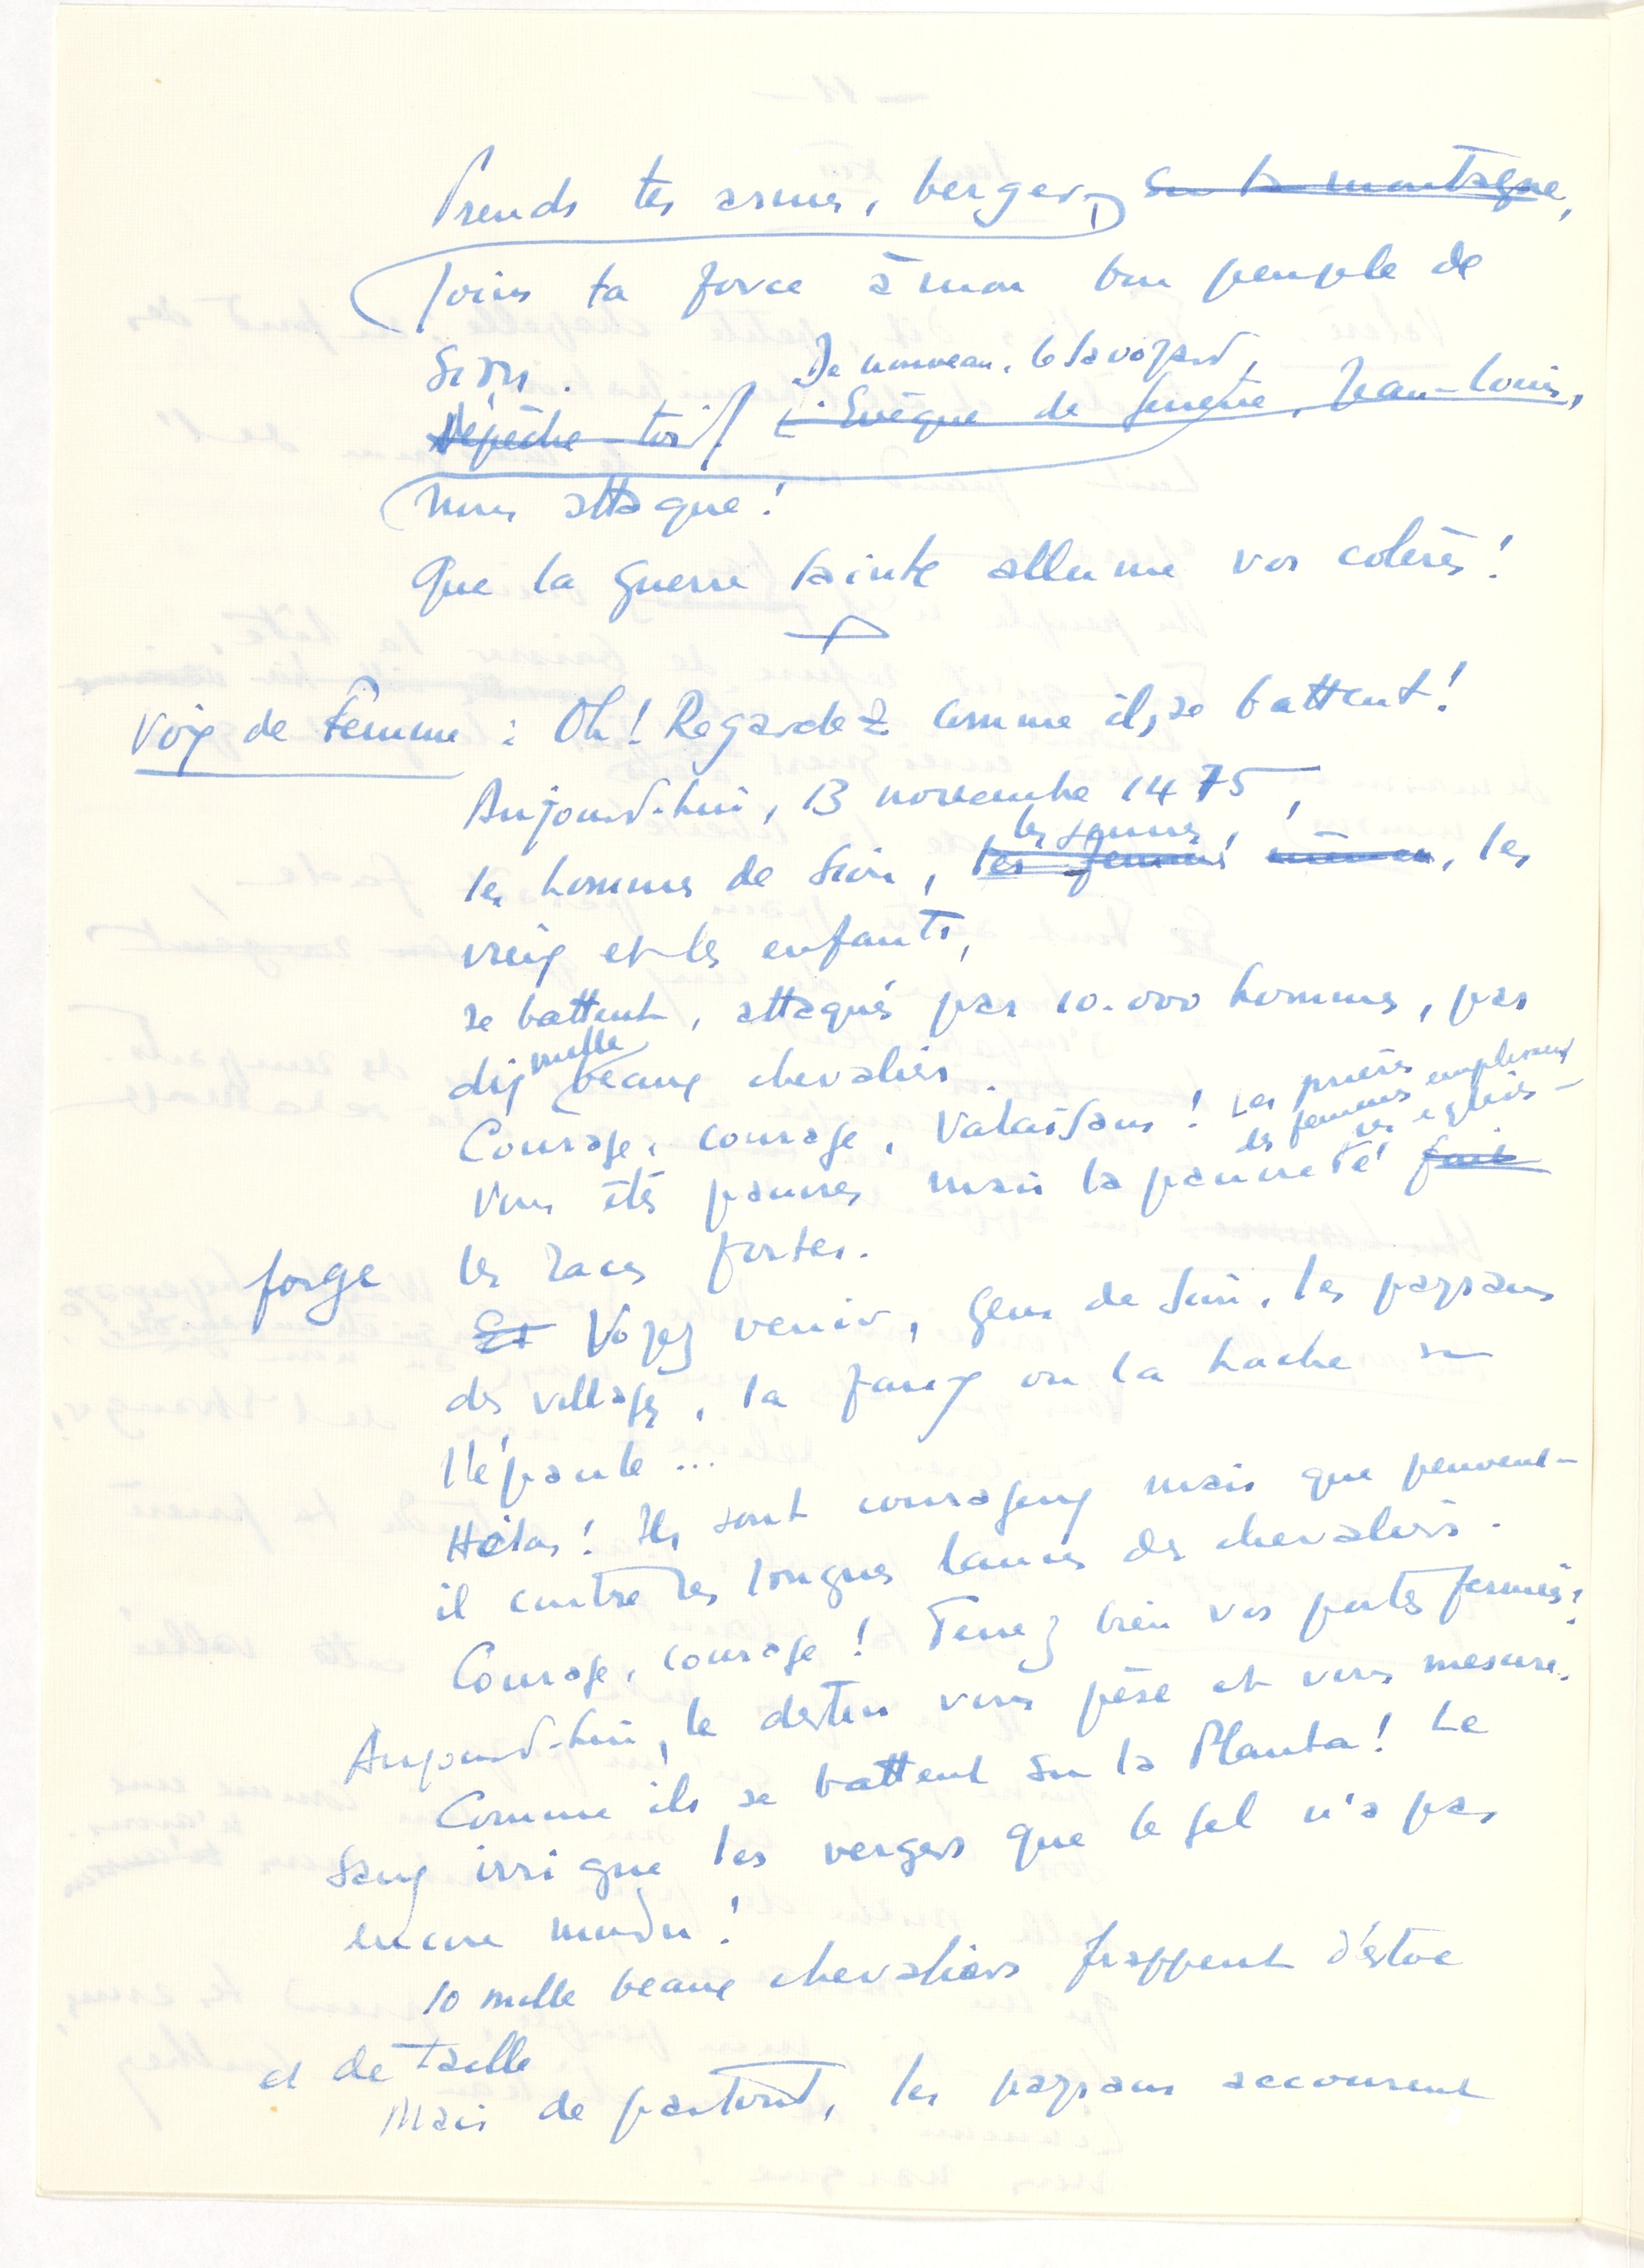 Prends tes armes, berger, sur la montagne,
Joins ta force à mon bon peuple de
Sion. De nouveau, le Savoyard,
Dépêche-toi! L'Evêque de Genève, Jean-Louis,
nous attaque!
Que la guerre sainte allume vos colères!
Voix de Femme : Oh! Regardez comme ils se battent!
Aujourd'hui, 13 novembre 1475,
les jeunes,
les hommes de Sion, les femmes, les
vieux et les enfants,
se battent, attaqués par 10.000 hommes, par
dix mille beaux chevaliers.
Courage, courage, Valaisans! Les prières
des femmes emplissent
vos églises -
Vous êtes pauvres mais la pauvreté fait
forge les races fortes.
Et Voyez venir, gens de Sion, les paysans
des villages, la faux ou la hache sur
l'épaule ...
Hélas! Ils sont courageux mais que peuvent-
il contre les longues lances des chevaliers.
Courage, courage! Tenez bien vos portes fermées!
Aujourd'hui, le destin vous pèse et vous mesure.
Comme ils se battent sur la Planta! Le
sang irrigue les vergers que le gel n'a pas
encore mordu!
10 mille beaux chevaliers frappent d'estoc
et de taille
Mais de partout, les paysans accourent